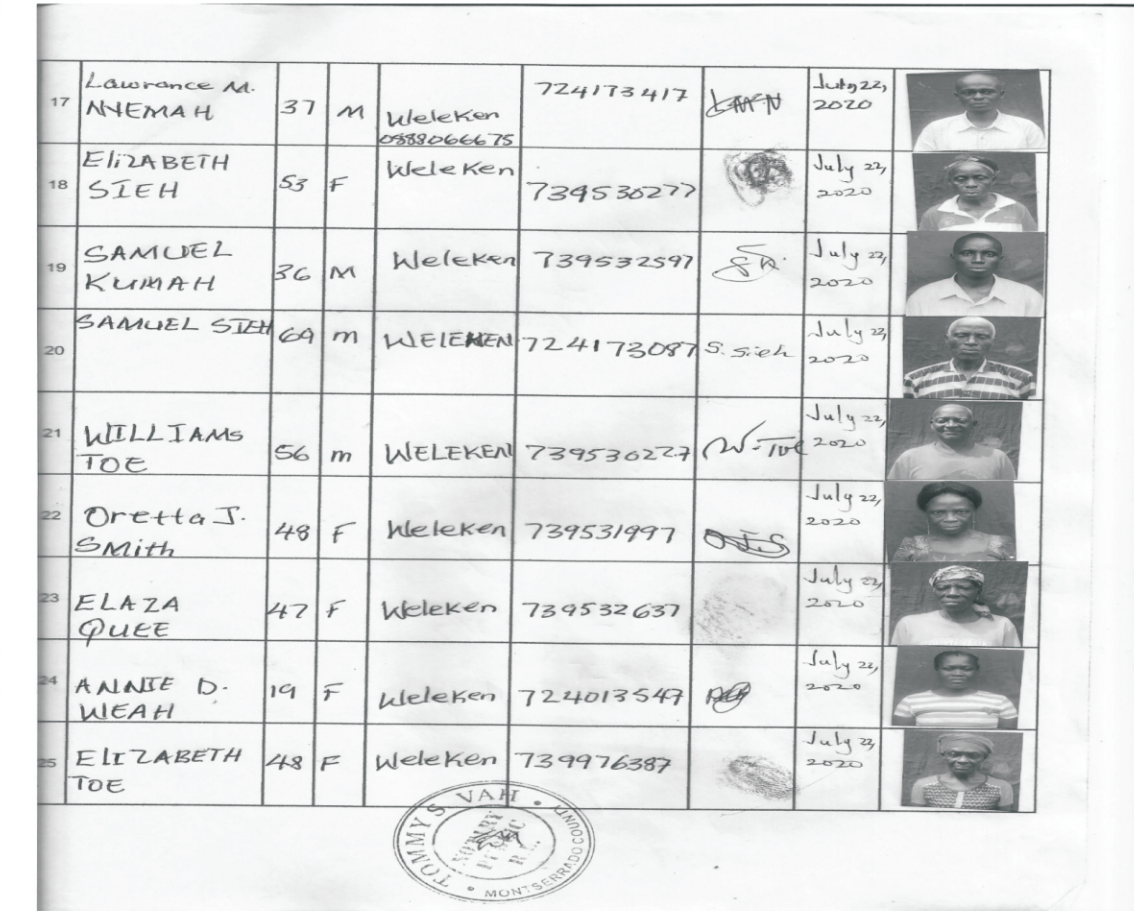 17 Lawrance M. NYEMAH 37 M Weleken 0888066675 724173417 LMN July 22, 2020
18 EliZABETH SIEH 53 F Weleken 739530277 July 22, 2020
19 SAMUEL KUMAH 36 M Weleken 739532597 S.K. July 22, 2020
20 SAMUEL SIEH 69 m WELEKEN 724173087 S. Sieh July 22, 2020
21 WILLIAMS TOE 56 m WELEKEN 739530227 W. Toe July 22, 2020
22 Oretta J. SMith 48 F Weleken 739531997 OJS July 22, 2020
23 ELAZA QUEE 47 F Weleken 739532637 July 22, 2020
24 ANNIE D. WEAH 19 F Weleken 724013547 July 22, 2020
25 ELIZABETH TOE 48 F Weleken 739976387 July 22, 2020
TOMMY S. VAH
NOTARY PUBLIC
MONTSERRADO COUNTY